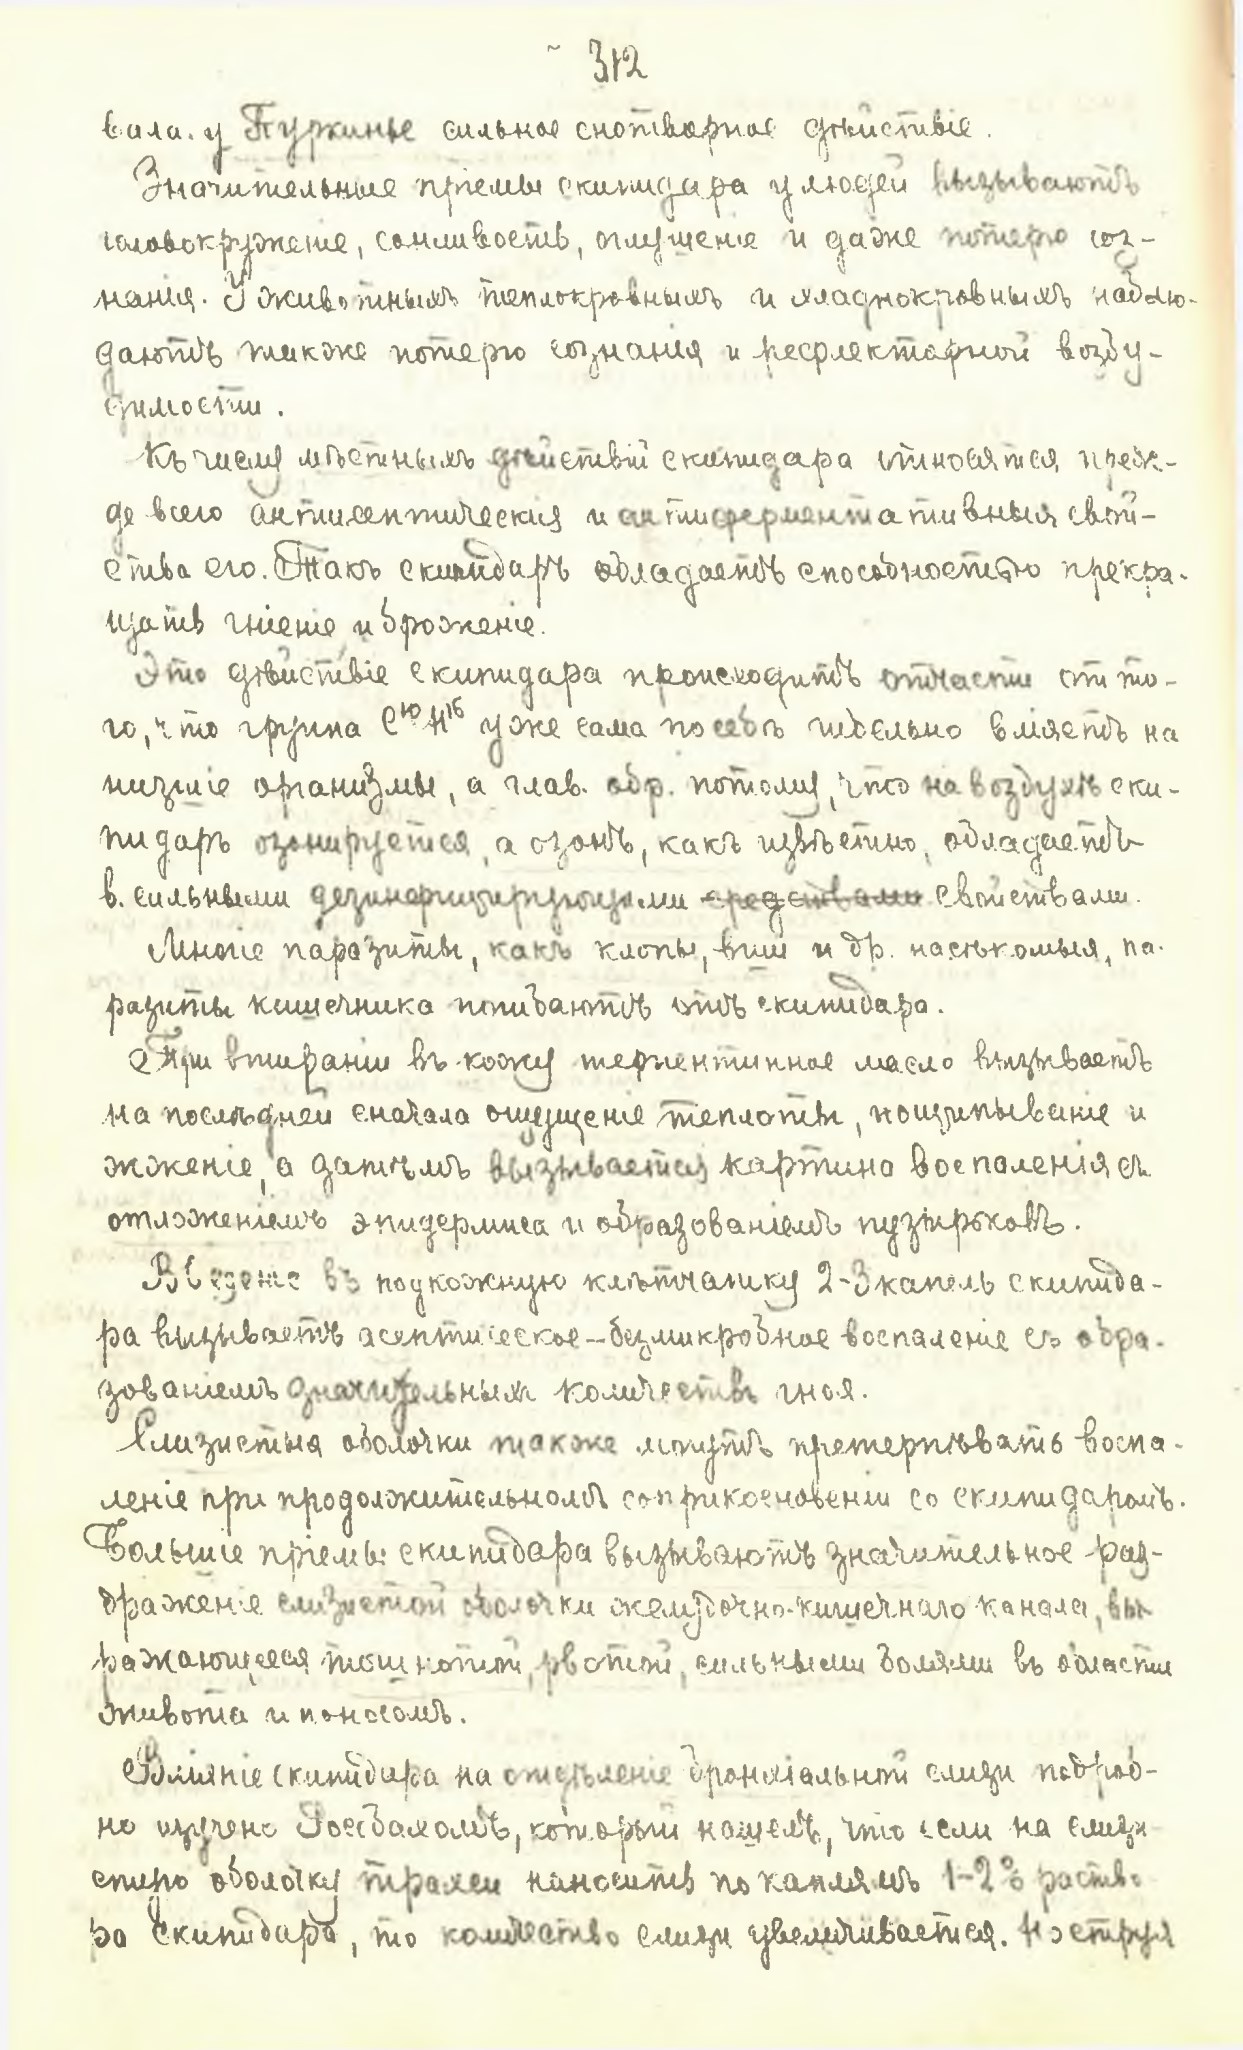 312
вала. у Пуркинье сильное снотворное дѣйствіе.
Значительные пріемы скипидара у людей вызываютъ
головокруженіе, сонливость, оглушеніе и даже потерю соз-
нанія. У животныхъ теплокровныхъ и хладнокровныхъ наблю-
даютъ также потерю сознанія и рефлекторной возбу-
димости.
Къ числу мѣстныхъ дѣйствій скипидара относятся преж-
де всего антисептическія и антиферментативныя свой-
ства его. Такъ скипидаръ обладаетъ способностью прекра-
щать гніеніе и броженіе.
Это дѣйствіе скипидара происходитъ отчасти отто-
го, что група C¹⁰H¹⁶ уже сама по себѣ гибельно вліяетъ на
низшіе организмы, а глав. обр. потому, что на воздухѣ ски-
пидаръ озонируется, а озонъ, какъ извѣстно, обладаетъ
в. сильными дезинфицирующими средствами свойствами.
Многіе паразиты, какъ клопы, вши и др. насѣкомыя, па-
разиты кишечника погибаютъ отъ скипидара.
При втираніи въ кожу терпентинное масло вызываетъ
на послѣдней сначала ощущеніе теплоты, пощипываніе и
жженіе, а затѣмъ вызывается картина воспаленія съ
отложеніемъ эпидермиса и образованіемъ пузырьковъ.
Введеніе въ подкожную клѣтчатку 2-3 капель скипида-
ра вызываетъ асептическое – безмикробное воспаленіе съ обра-
зованіемъ значительныхъ количествъ гноя.
Слизистыя оболочки также могутъ претерпѣвать воспа-
леніе при продолжительномъ соприкосновеніи со скипидаромъ.
Большіе пріемы скипидара вызываютъ значительное раз-
драженіе слизистой оболочки желудочно-кишечнаго канала, вы-
ражающееся тошнотой, рвотой, сильными болями въ области
живота и поносомъ.
Вліяніе скипидара на отдѣленіе бронхіальной слизи подроб-
но изучено Россбахомъ, который нашелъ, что если на слизи
стую оболочку трахеи наносить по каплямъ 1-2% раство
ра скипидара, то количество слизи увеличивается. Но струя